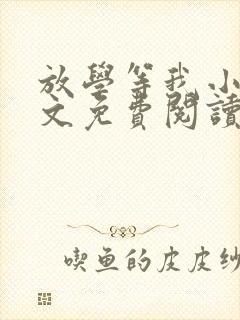 放學等我 小
文免費閱讀
喫魚的皮皮紗